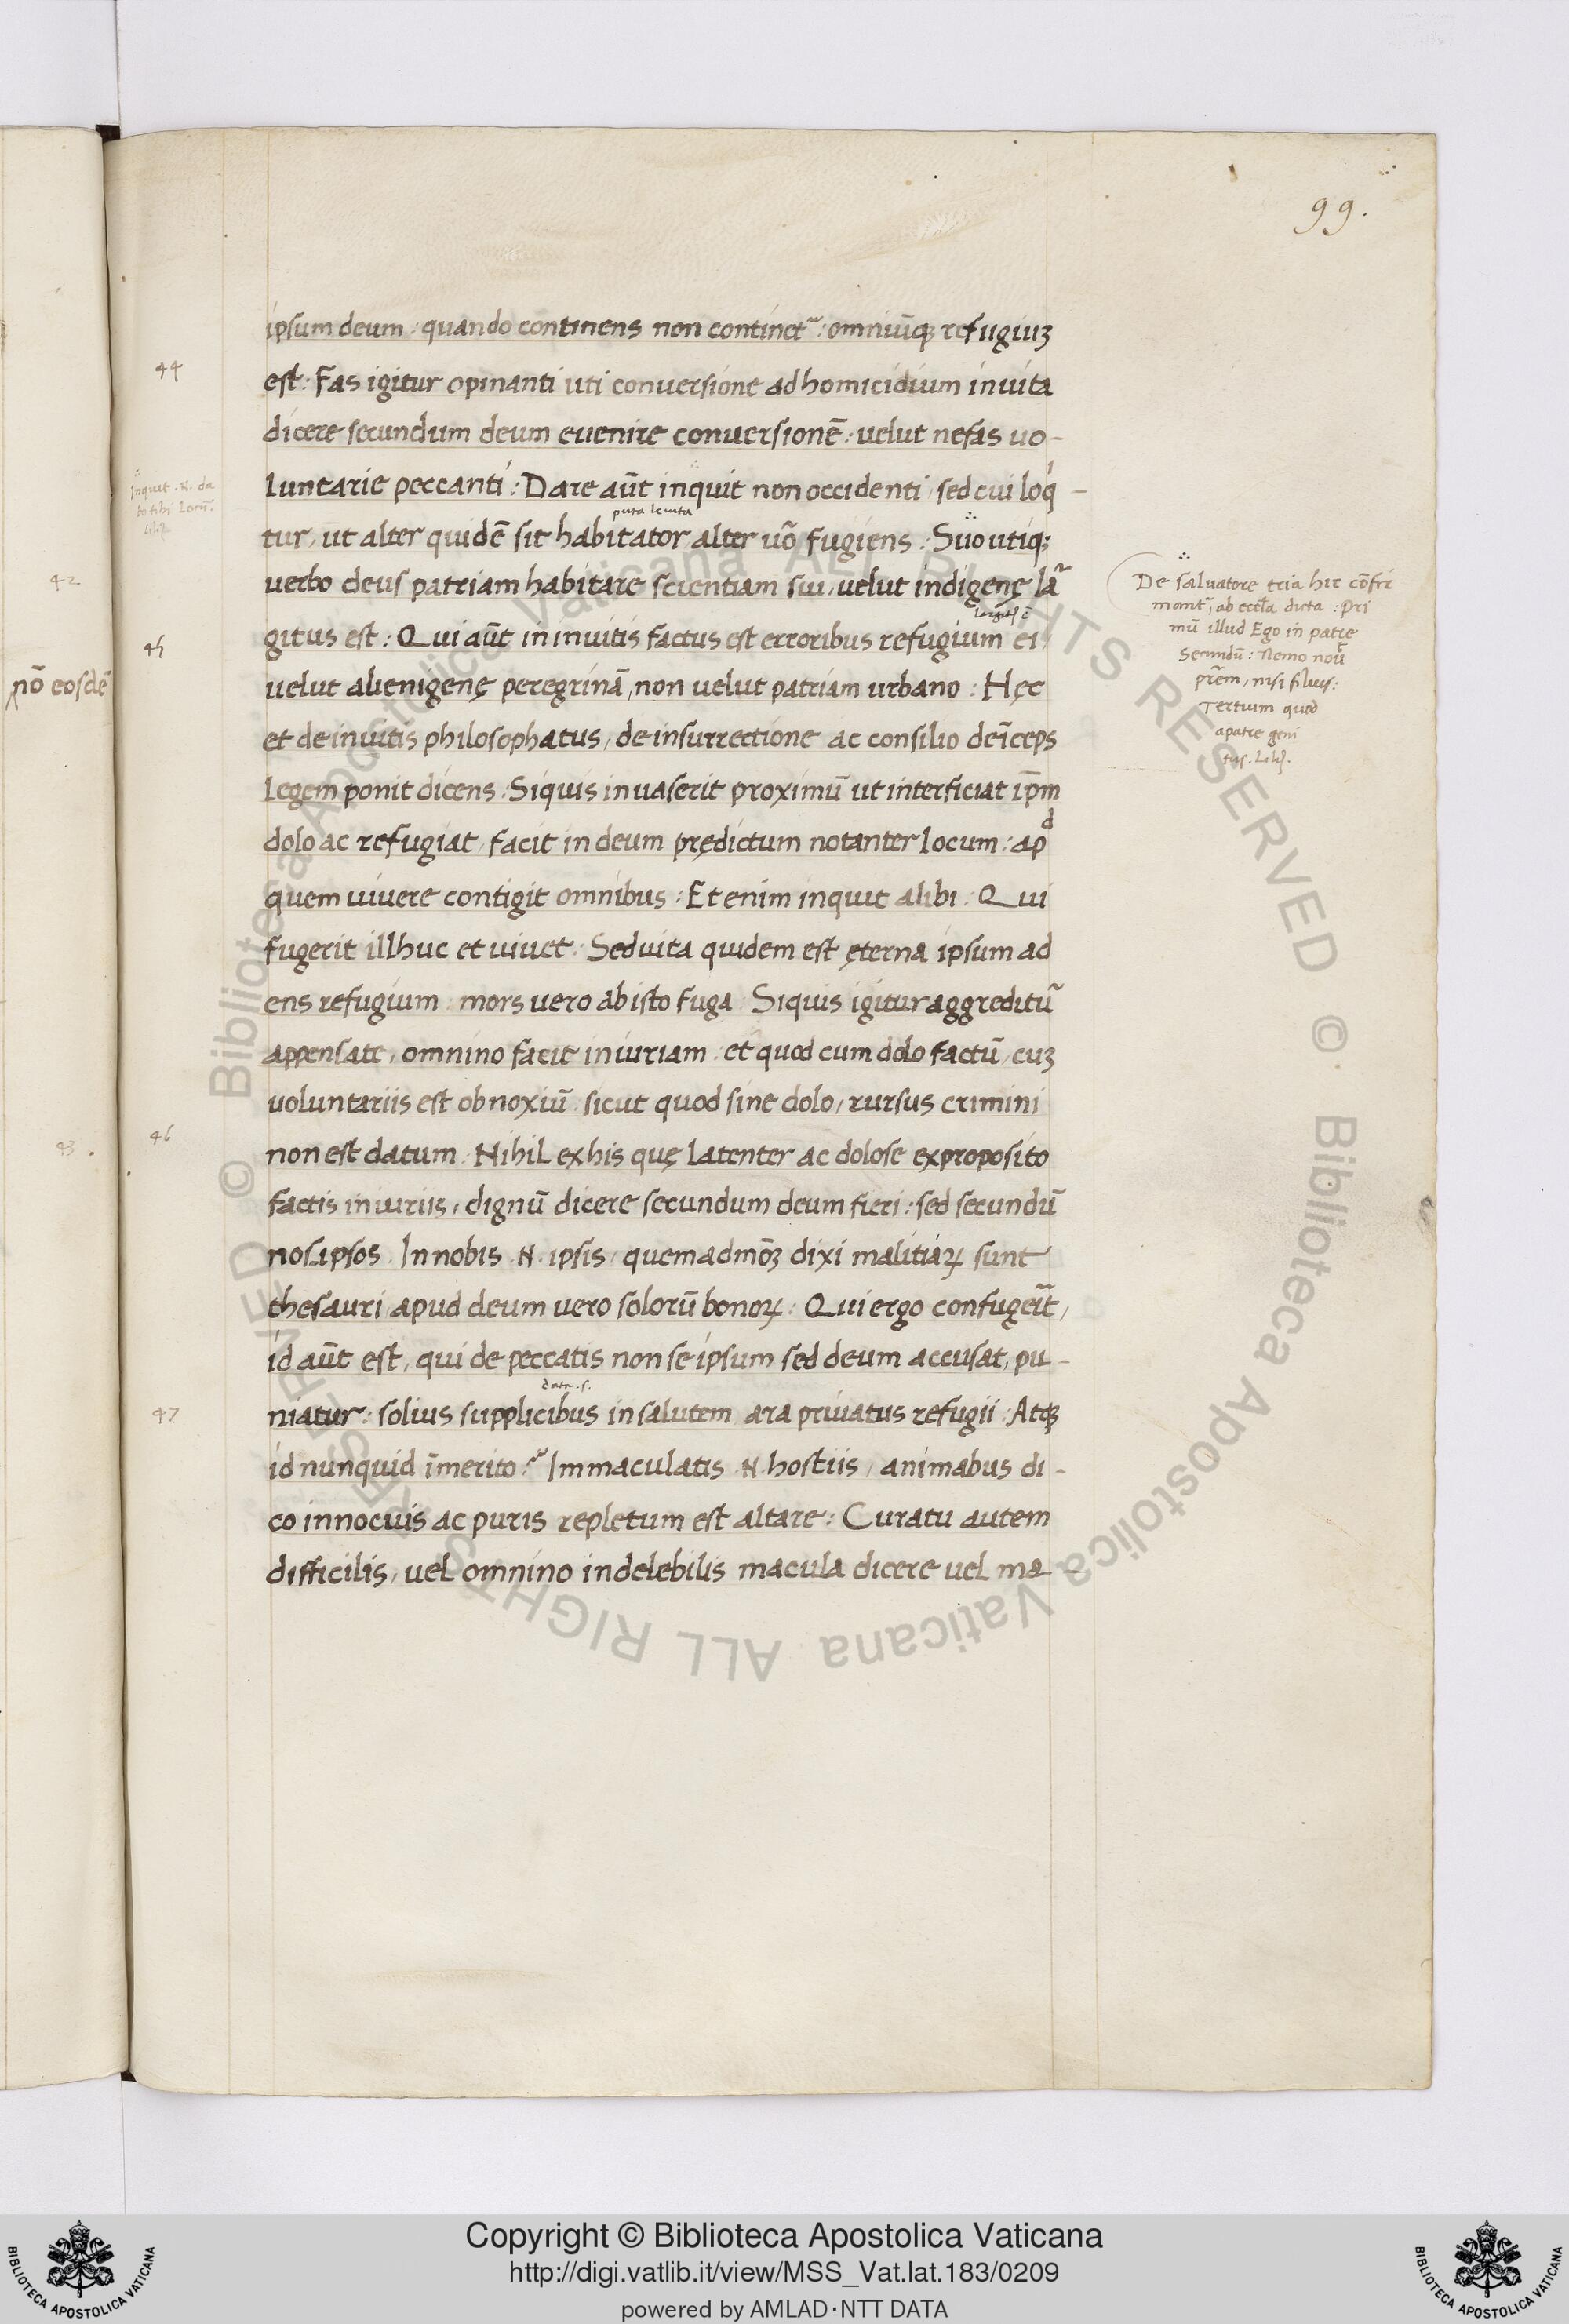 99.
ipsum deum: quando continens non continet᷑: omniūqꝫ refugiuꝫ
44
est: Fas igitur opinanti uti conuersione ad homicidium inuita
dicere secundum deum euenire conuersionē: uelut nefas uo-
luntarie peccanti: Dare aūt inquit non occidenti, sed cui loq̇-
puta leuita
tur, ut alter quidē sit habitator, alter uō fugiens: Suo utiqꝫ
uerbo deus patriam habitare scientiam sui, uelut indigenę la᷑
45
gitus est: Qui aūt in inuitis factus est erroribus refugium ei
uelut alienigenę peregrinā, non uelut patriam urbano: Hęc
et de inuitis philosophatus, de insurrectione ac consilio deīceps
legem ponit dicens: Siquis inuaserit proximū ut interficiat ip̄m
dolo ac refugiat, facit in deum prędictum notanter locum: apᵈ
quem uiuere contigit omnibus: Et enim inquit alibi: Qui
fugerit illhuc et uiuet: Sed uita quidem est ęterna ipsum ad
ens refugium: mors uero ab isto fuga: Siquis igitur aggreditu᷑
appensate, omnino facit iniuriam: et quod cum dolo factū, cuꝫ
uoluntariis est obnoxiū: sicut quod sine dolo, rursus crimini
46
non est datum. Nihil ex his quę latenter ac dolose ex proposito
factis iniuriis, dignū dicere secundum deum fieri: sed secundū
nos ipsos. In nobis .N. ipsis, quemadmōꝫ dixi malitiaꝝ sunt
thesauri apud deum uero solorū bonoꝝ: Qui ergo confugeīt,
id aūt est, qui de peccatis non se ipsum sed deum accusat, pu-
47
niatur: solius supplicibus in salutem ara priuatus refugii: Atqꝫ
id nunquid īmerito? Immaculatis .N. hostiis, animabus di-
co innocuis ac puris repletum est altare: Curatu autem
difficilis, uel omnino indelebilis macula dicere uel ma-
De saluatore tria hic cōfir
mant᷑, ab eccl̄a dicta: Pri
mū illud Ego in patre
Secundū: Nemo nouit
pr̄em, nisi filius:
Tertium quod
a patre geni
tus.
42
nō eosdē
43.
Copyright © Biblioteca Apostolica Vaticana
http://digi.vatlib.it/view/MSS_Vat.lat.183/0209
powered by AMLAD·NTT DATA
BIBLIOTECA APOSTOLICA VATICANA
BIBLIOTECA APOSTOLICA VATICANA
© Biblioteca Apostolica Vaticana ALL RIGHTS RESERVED © Biblioteca Apostolica Vaticana ALL RIGHTS RESERVED